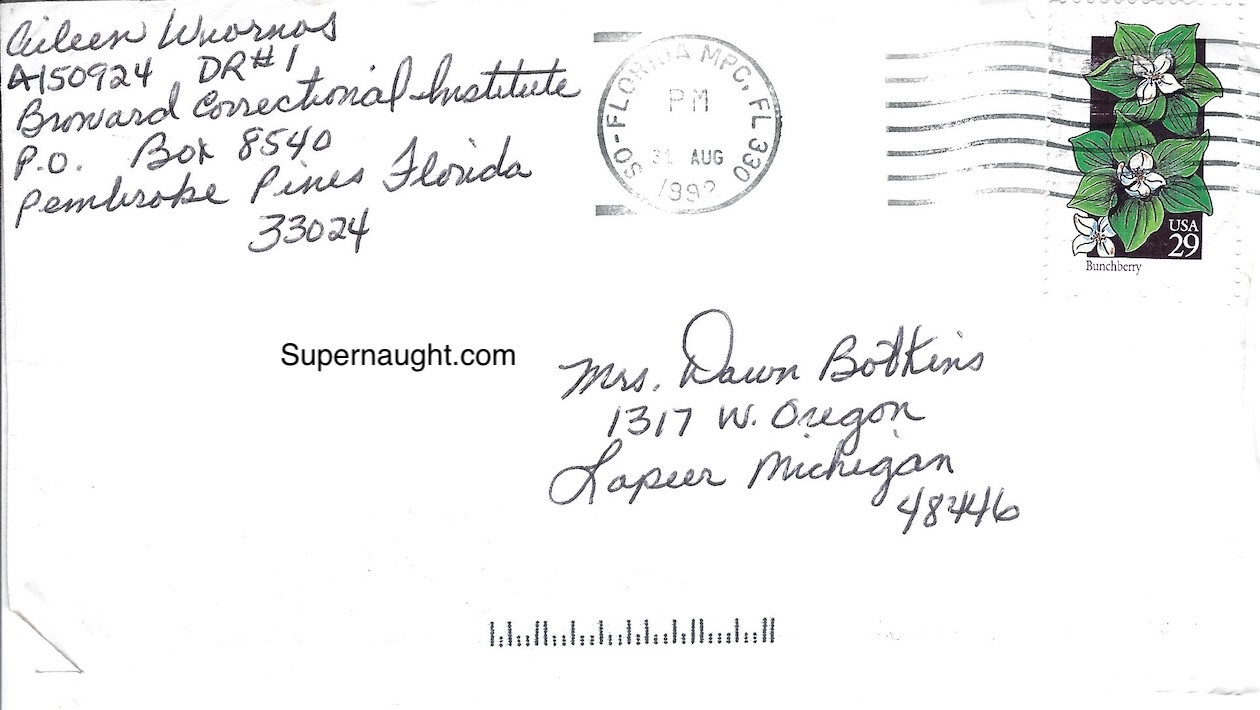 Aileen Wuornos
A150924 DR#1
Broward Correctional Institute
P.O. Box 8540
Pembroke Pines Florida
33024
SO-FLORIDA MPC, FL 330
PM
31 AUG
1992
USA
29
Bunchberry
Supernaught.com
Mrs. Dawn Botkins
1317 W. Oregon
Lapeer Michigan
48446